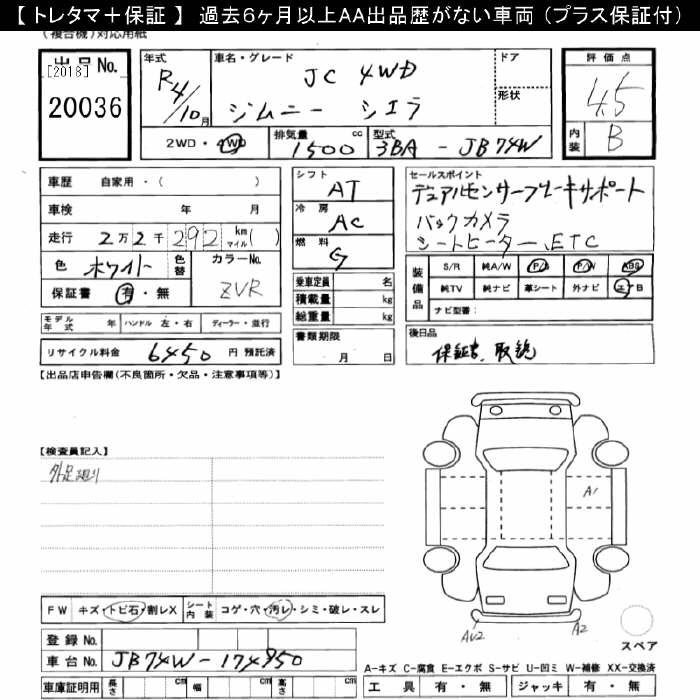 【 トレタマ＋保証 】 過去６ヶ月以上AA出品歴がない車両（プラス保証付）
(複合機)対応用紙
出品No.
[2018]
20036
年式
R4/10月
車名・グレード
JC 4WD
ジムニー シエラ
ドア
形状
2WD・4WD
排気量 cc
1500
型式
3BA - JB74W
評価点
4.5
内装
B
車歴 自家用・( )
車検 年 月
走行 2万2千292 km マイル( )
色 ホワイト 色替 カラーNo.
ZVR
保証書 有・無
モデル年式 年 ハンドル 左・右 ディーラー・並行
リサイクル料金 6450 円 預託済
シフト
AT
冷房
AC
燃料
G
乗車定員 名
積載量 kg
総重量 kg
書類期限
月 日
セールスポイント
デュアルセンサーブレーキサポート
バックカメラ
シートヒーター、ETC
装備品
S/R 純A/W P/S P/W ABS
純TV 純ナビ 革シート 外ナビ エアB
ナビ型番：
後日品
保証書、取説
【出品店申告欄(不良箇所・欠品・注意事項等)】
【検査員記入】
外足廻り
A1
AU2
A2
スペア
FW キズ・トビ石・割レX シート内装 コゲ・穴・汚レ・シミ・破レ・スレ
登録No.
車台No. JB74W-174950
車庫証明用 長さ cm 幅 cm 高さ cm
A-キズ C-腐食 E-エクボ S-サビ U-凹ミ W-補修 XX-交換済
工具 有・無 ジャッキ 有・無